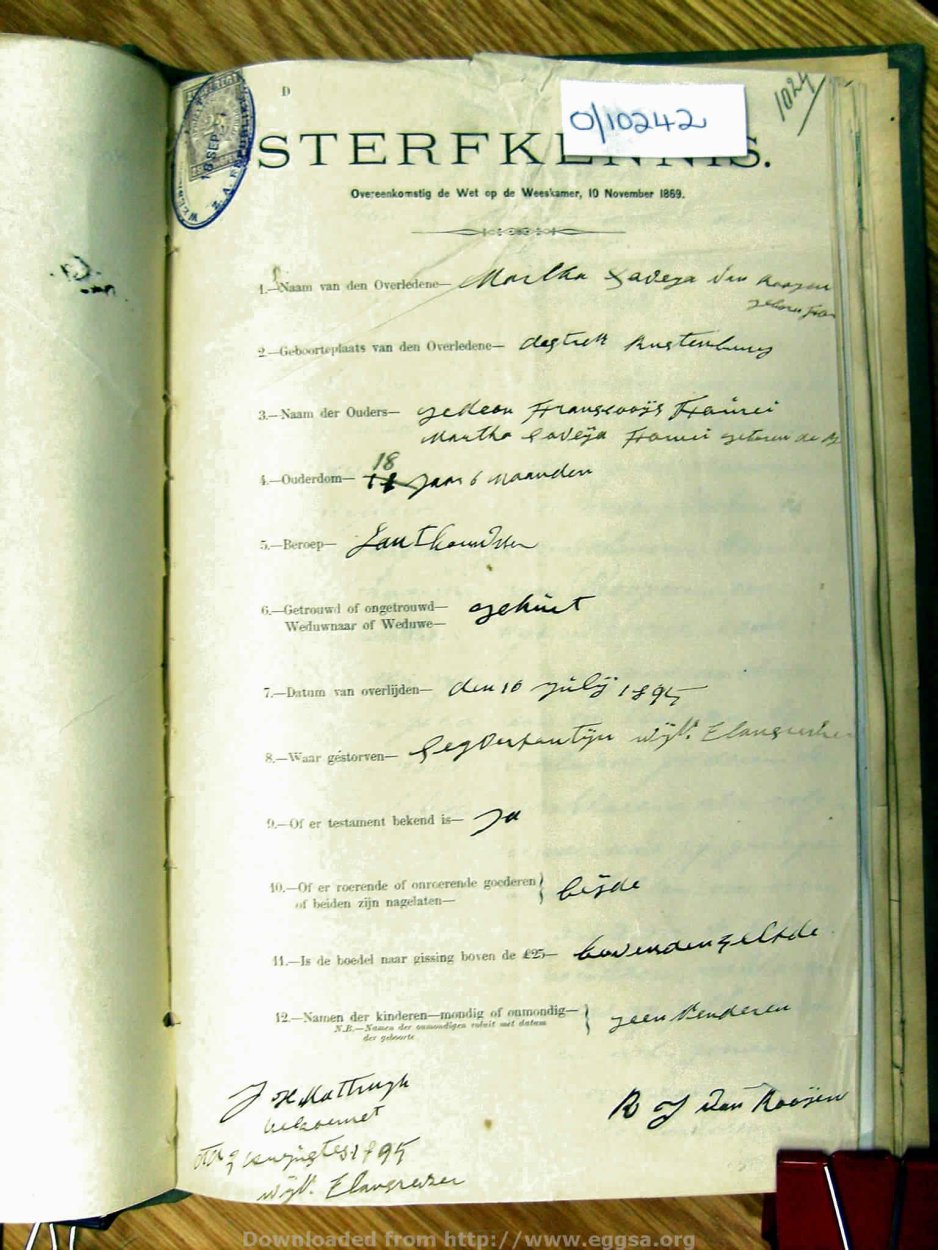 D
0/10242
1024
STERFKENNIS.
Overeenkomstig de Wet op de Weeskamer, 10 November 1869.
1.—Naam van den Overledene— Martha Saveya Van Rooyen
geboren
2.—Geboorteplaats van den Overledene— destrek Rustenburg
3.—Naam der Ouders— gedeon Fransooys
Martha Saveya geboren de
4.—Ouderdom— 18 Jaar 6 maanden
5.—Beroep—
6.—Getrouwd of ongetrouwd— gehuut
Weduwnaar of Weduwe—
7.—Datum van overlijden— den 10 July 1895
8.—Waar gestorven— wijk Elandsrevier
9.—Of er testament bekend is— Ja
10.—Of er roerende of onroerende goederen beijde
of beiden zijn nagelaten—
11.—Is de boedel naar gissing boven de £25— bovendengelsde
12.—Namen der kinderen—mondig of onmondig— geen kenderen
N.B.—Namen der onmondigen voluit met datum
der geboorte
R J Van Rooyen
1895
wijk Elansrevier
Downloaded from http://www.eggsa.org